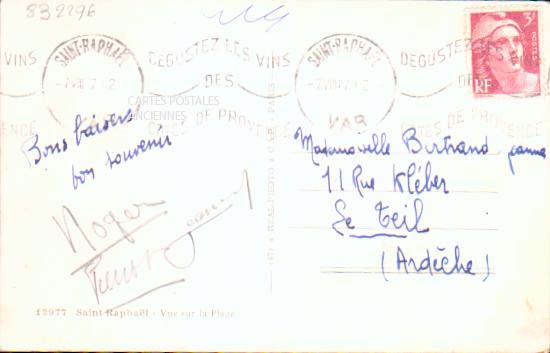 832296
SAINT-RAPHAEL
VAR
DEGUSTEZ LES VINS
DES
CÔTES DE PROVENCE
SAINT-RAPHAEL
VAR
DEGUSTEZ
DES
CÔTES DE PROVENCE
3F
RF
CARTES POSTALES
ANCIENNES
Bons baisers
bon souvenir
Roger
Mademoiselle Bertrand Jeanne
11 Rue Kléber
Le Teil
(Ardèche)
12977 Saint-Raphaël - Vue sur la Plage